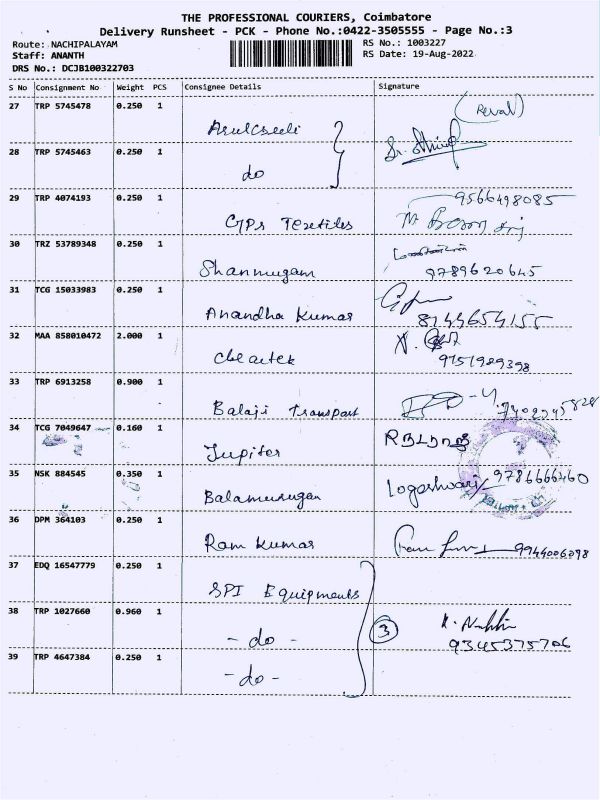 THE PROFESSIONAL COURIERS, Coimbatore
Delivery Runsheet - PCK - Phone No.:0422-3505555 - Page No.:3
Route: NACHIPALAYAM
RS No.: 1003227
Staff: ANANTH
RS Date: 19-Aug-2022
DRS No.: DCJB100322703
S No Consignment No Weight PCS Consignee Details Signature
27 TRP 5745478 0.250 1
28 TRP 5745463 0.250 1 do
29 TRP 4074193 0.250 1 GPs Textiles 9566498085
30 TRZ 53789348 0.250 1 Shanmugam 9789620645
31 TCG 15033983 0.250 1 Anandha Kumar 8144654155
32 MAA 858010472 2.000 1 9751989398
33 TRP 6913258 0.900 1 Balaji Transport
34 TCG 7049647 0.160 1 Jupiter
35 NSK 884545 0.350 1 Balamurugan Logeshwari 9786666460
36 DPM 364103 0.250 1 Ram Kumar 9944006098
37 EDQ 16547779 0.250 1 SPI Equipments
38 TRP 1027660 0.960 1 - do - 3 9345375706
39 TRP 4647384 0.250 1 - do -